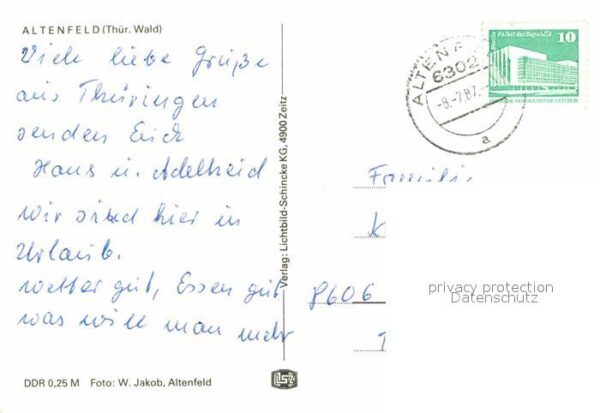 ALTENFELD (Thür. Wald)
Viele liebe Grüße
aus Thüringen
senden Euch
Hans u. Adelheid
wir sind hier in
Urlaub.
Wetter gut, Essen gut
was will man mehr
DDR 0,25 M Foto: W. Jakob, Altenfeld
Verlag: Lichtbild-Schincke KG, 4900 Zeitz
ALTENF
6302
-8.-7.87.
a
Berlin Palast der Republik
10
DEUTSCHE DEMOKRATISCHE REPUBLIK
Familie
K
8606
privacy protection
Datenschutz